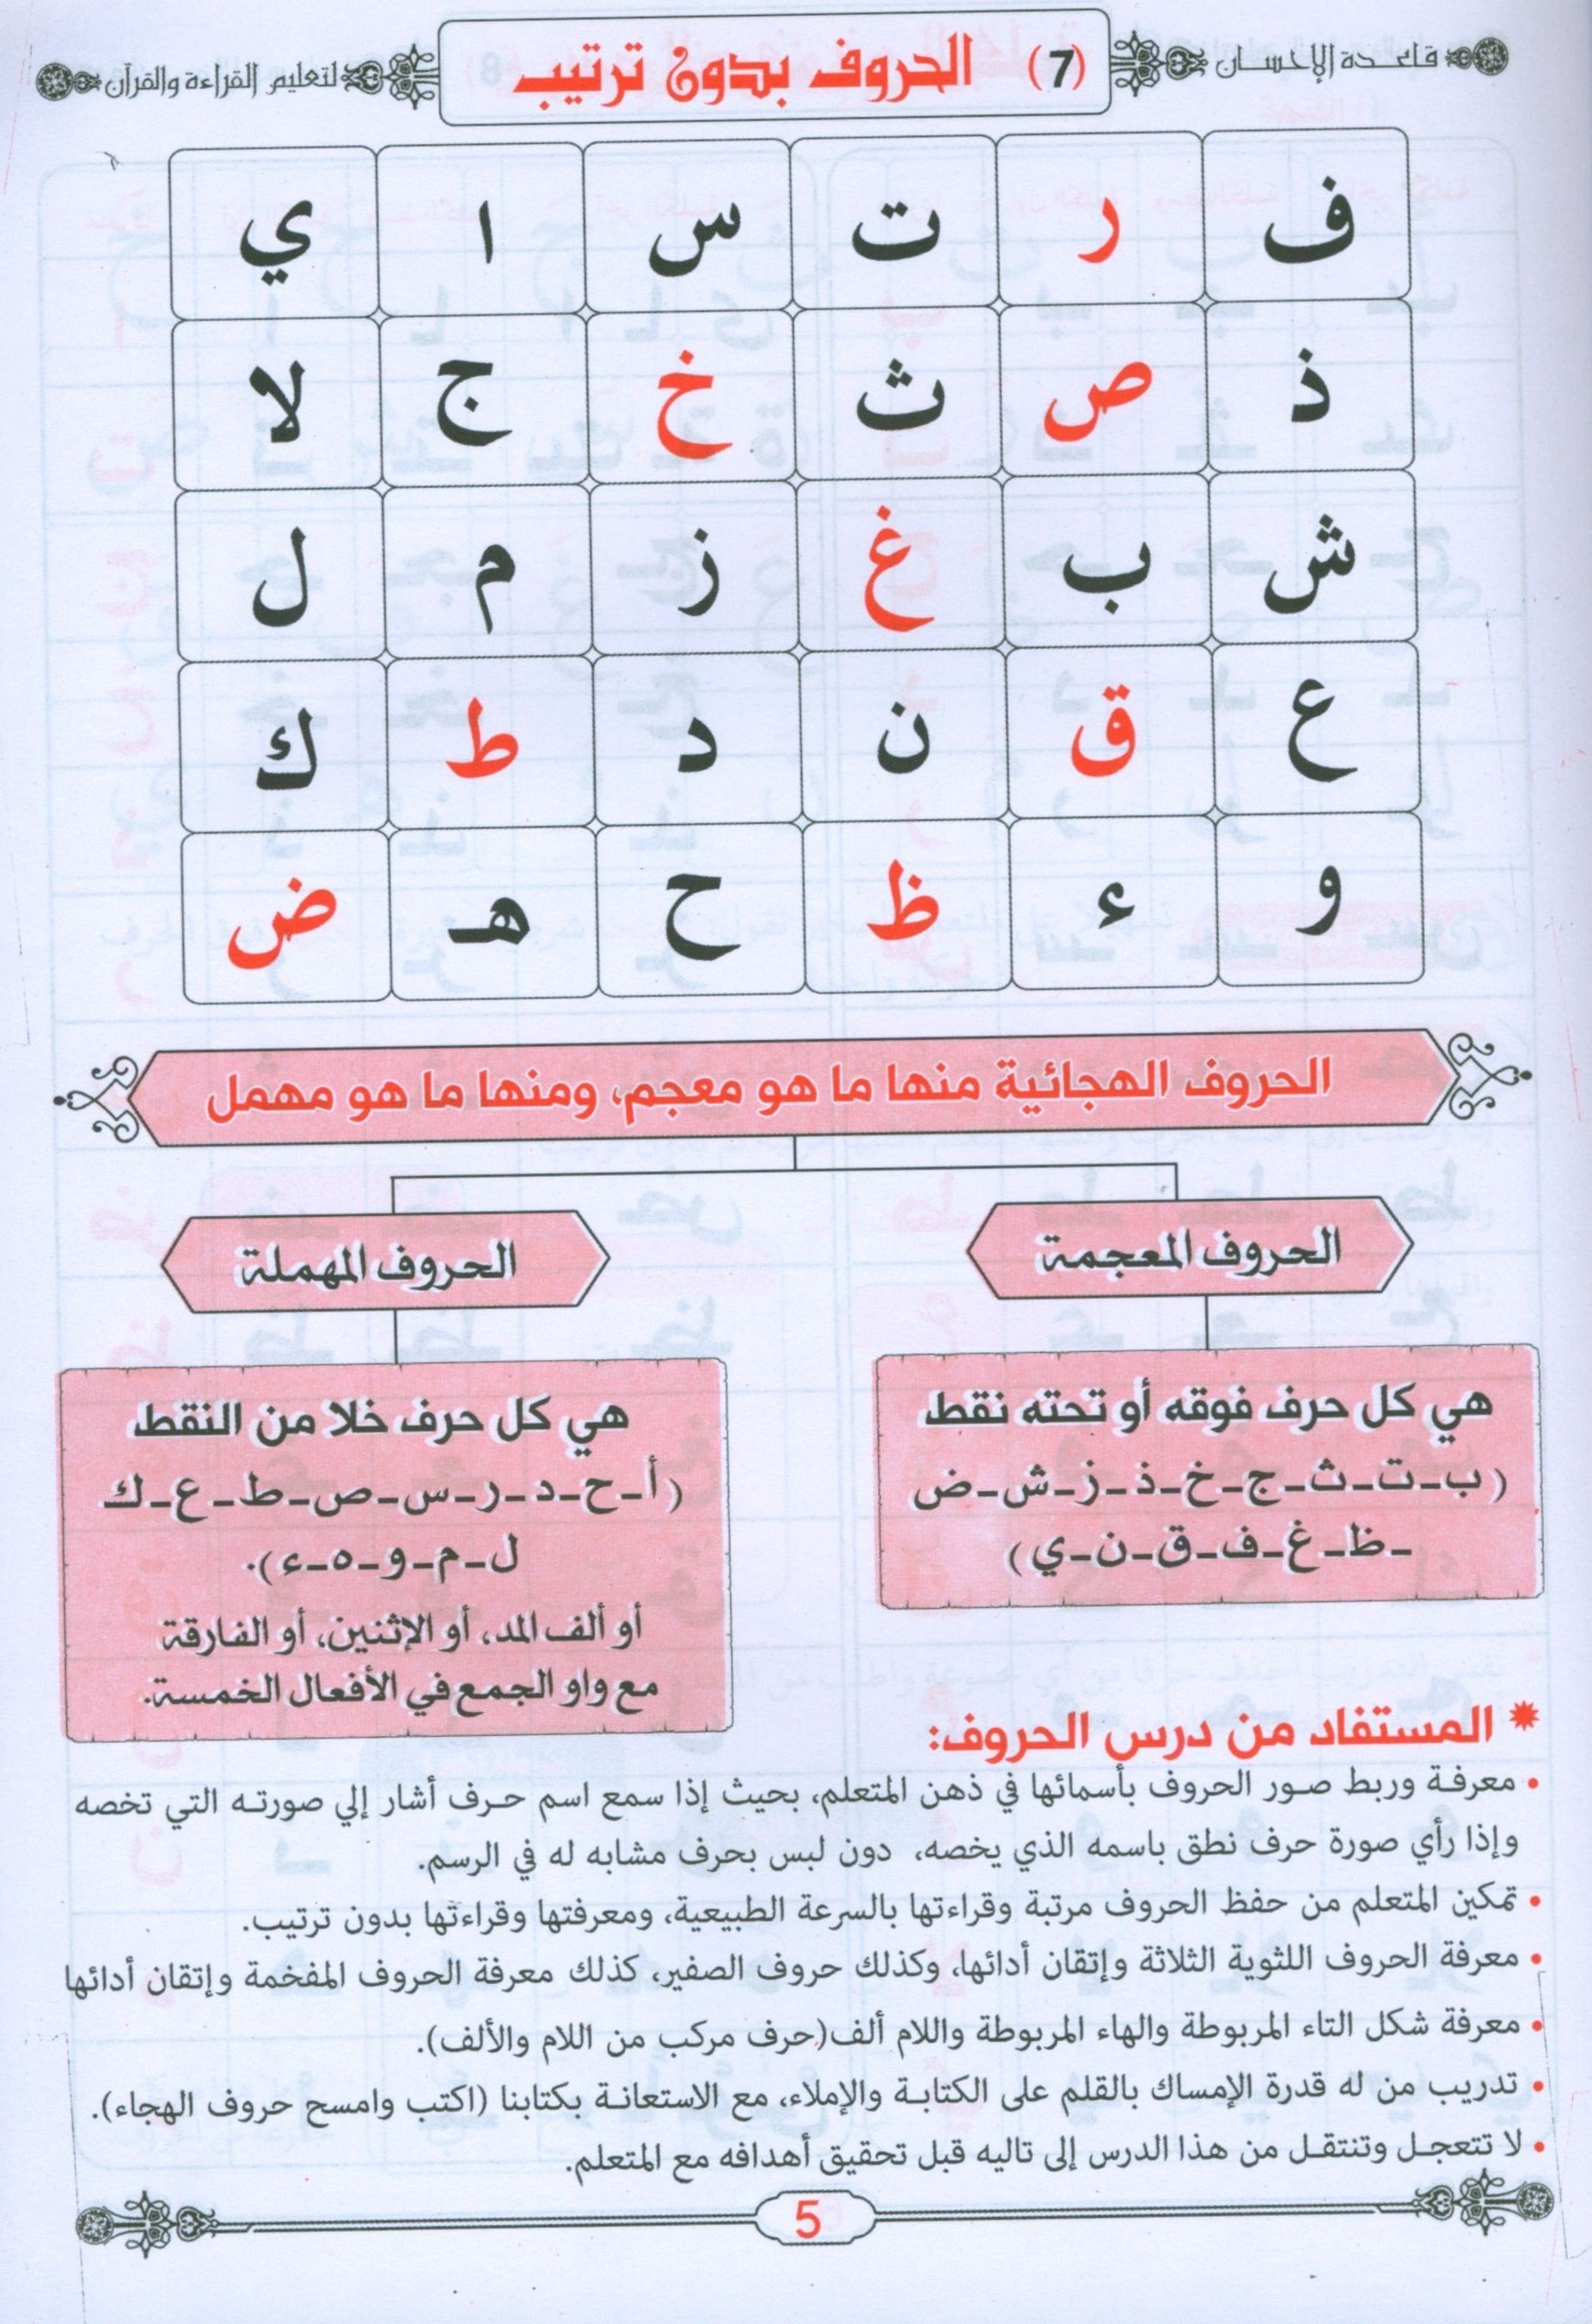 قاعدة الإحسان
(7) الحروف بدون ترتيب
لتعليم القراءة والقرآن
ف ر ت س ا ي
ذ ص ث خ ج لا
ش ب غ ز م ل
ع ق ن د ط ك
و ء ظ ح هـ ض
الحروف الهجائية منها ما هو معجم، ومنها ما هو مهمل
الحروف المعجمة
هي كل حرف فوقه أو تحته نقط
(ب-ت-ث-ج-خ-ذ-ز-ش-ض
-ظ-غ-ف-ق-ن-ي)
الحروف المهملة
هي كل حرف خلا من النقط
(أ-ح-د-ر-س-ص-ط-ع-ك
ل-م-و-ه-ء).
أو ألف المد، أو الإثنين، أو الفارقة
مع واو الجمع في الأفعال الخمسة.
* المستفاد من درس الحروف:
• معرفة وربط صور الحروف بأسمائها في ذهن المتعلم، بحيث إذا سمع اسم حرف أشار إلي صورته التي تخصه
وإذا رأي صورة حرف نطق باسمه الذي يخصه، دون لبس بحرف مشابه له في الرسم.
• تمكين المتعلم من حفظ الحروف مرتبة وقراءتها بالسرعة الطبيعية، ومعرفتها وقراءتها بدون ترتيب.
• معرفة الحروف اللثوية الثلاثة وإتقان أدائها، وكذلك حروف الصفير، كذلك معرفة الحروف المفخمة وإتقان أدائها
• معرفة شكل التاء المربوطة والهاء المربوطة واللام ألف(حرف مركب من اللام والألف).
• تدريب من له قدرة الإمساك بالقلم على الكتابة والإملاء، مع الاستعانة بكتابنا (اكتب وامسح حروف الهجاء).
• لا تتعجل وتنتقل من هذا الدرس إلى تاليه قبل تحقيق أهدافه مع المتعلم.
5